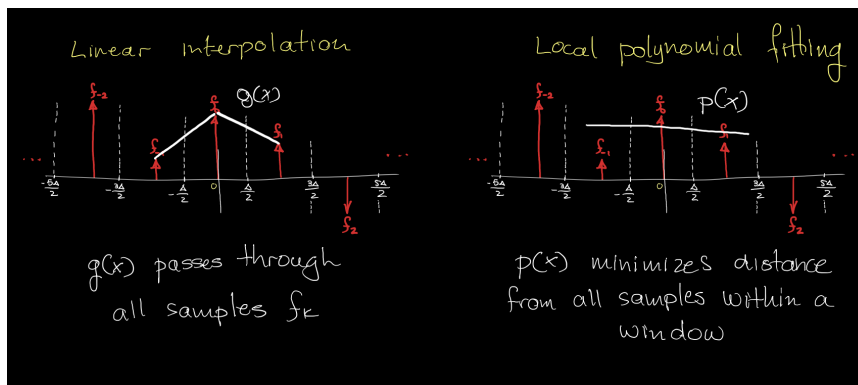 Linear interpolation
f-2
f0
g(x)
f-1
f1
...
...
-5Δ/2
-3Δ/2
-Δ/2
0
Δ/2
3Δ/2
5Δ/2
f2
g(x) passes through
all samples fk
Local polynomial fitting
f-2
f0
p(x)
f-1
f1
...
...
-5Δ/2
-3Δ/2
-Δ/2
0
Δ/2
3Δ/2
5Δ/2
f2
p(x) minimizes distance
from all samples within a
window